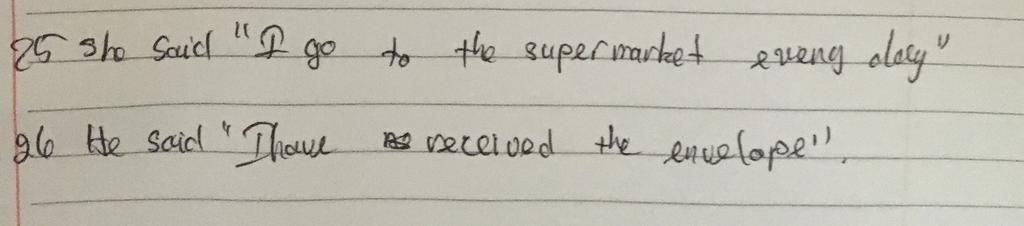 25 Sho Said "I go to the supermarket eveng day"
26 He said "I have received the envelope".